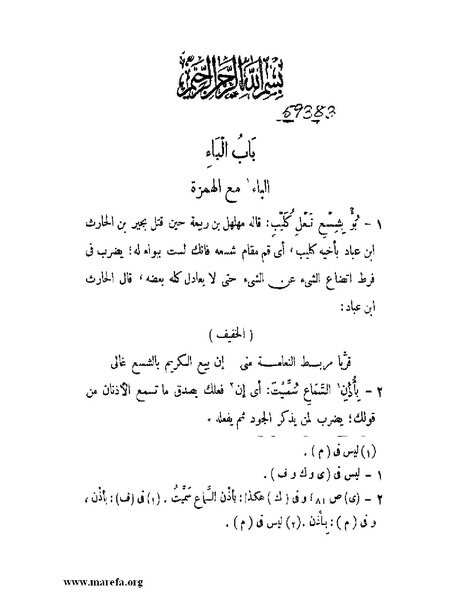 بسم الله الرحمن الرحيم
59383
بَابُ الْبَاءِ
الباء مع الهمزة
١ - بُؤْ بِشِسْعِ نَعْلِ كُلَيْبٍ: قاله مهلهل بن ربيعة حين قتل بجير بن الحارث
ابن عباد بأخيه كليب، أى قم مقام شسعه فانك لست ببواء له؛ يضرب فى
فرط اتضاع الشىء عن الشىء حتى لا يعادل كله بعضه، قال الحارث
ابن عباد:
( الخفيف )
قرّبا مربط النعامة منى إن بيع الكريم بالشسع غالى
٢ - بِأُذُنِ السَّمَاعِ سُمِّيْتَ: أى إن فعلك يصدق ما تسمع الأذنان من
قولك؛ يضرب لمن يذكر الجود ثم يفعله .
(١) ليس فى ( م ) .
١ - ليس فى ( ى و ك و ف ) .
٢ - (ى) ص ٨١ وفى ( ك ) هكذا: بأذن السماع سميت . (١) فى (ف): بأذن ،
و فى ( م ) : بأذن .(٢) ليس فى ( م ) .
www.marefa.org